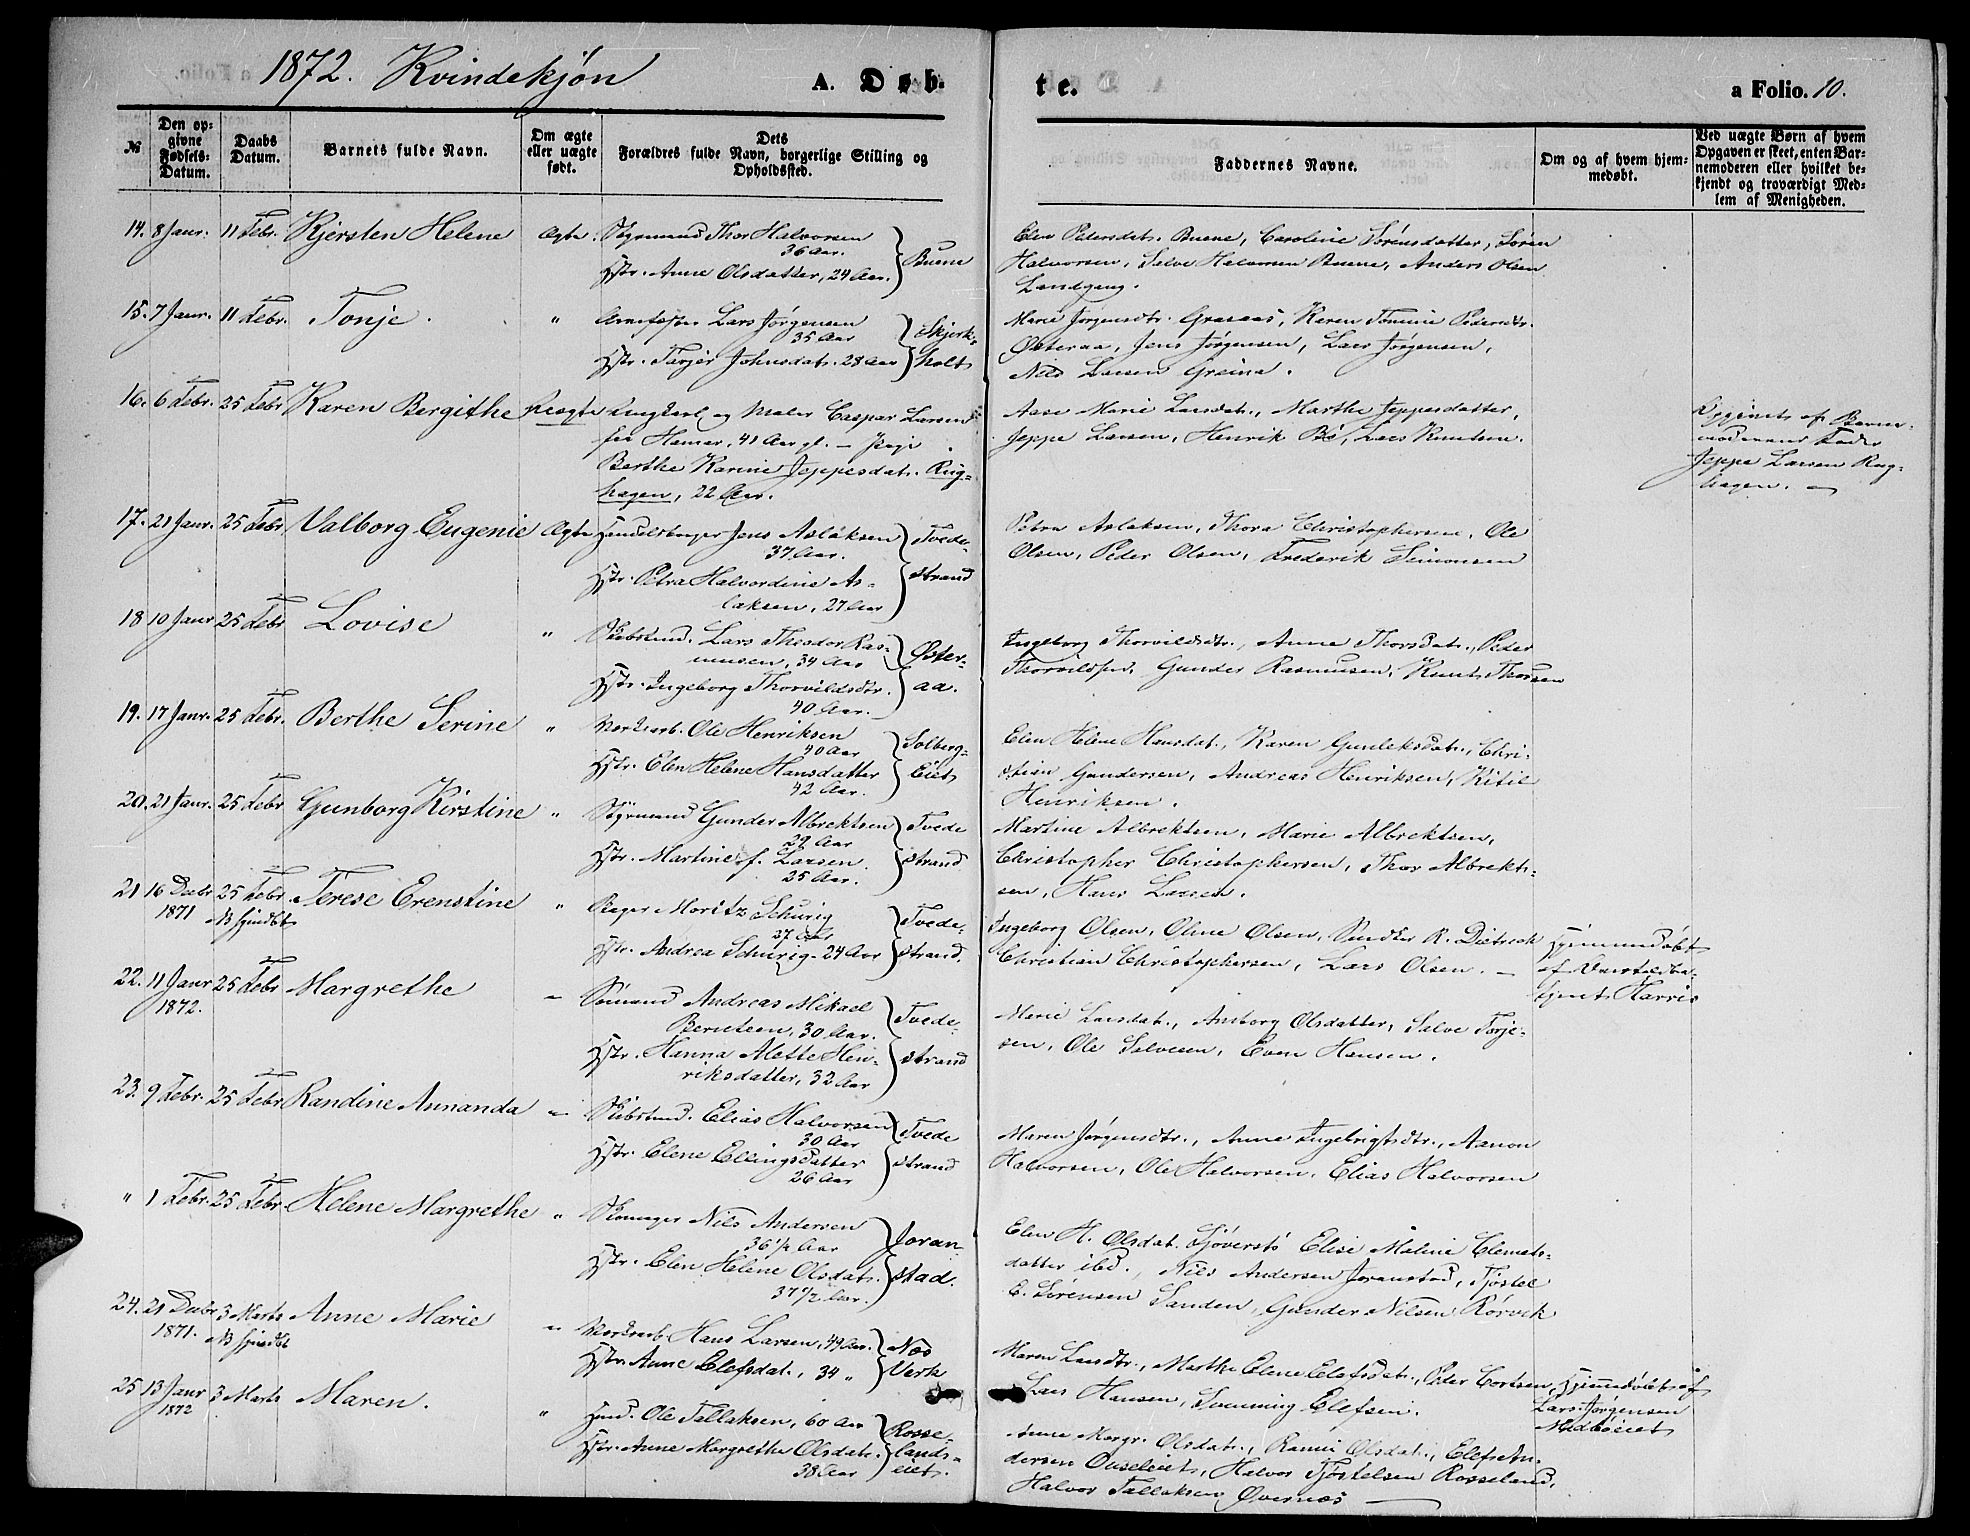 1872. Kvindekjøn
A. Døb-
te.
a Folio. 10.
№
Den op-
givne
Fødsels-
Datum.
Daabs
Datum.
Barnets fulde Navn.
Om ægte
eller uægte
født.
Dets
Forældres fulde Navn, borgerlige Stilling og
Opholdssted.
Faddernes Navne.
Om og af hvem hjem-
medøbt.
Ved uægte Børn af hvem
Opgaven er skeet, enten Bar-
nemoderen eller hvilket be-
kjendt og troværdigt Med-
lem af Menigheden.
14. 8 Janr. 11 Febr. Kjersten Helene Ægte. Styrmand Thor Halvorsen
36 Aar.
Hstr. Anne Olsdatter, 24 Aar. Buene
Elen Pedersdat. Buene, Caroline Sørensdatter, Søren
Halvorsen, Salve Halvorsen Buene, Anders Olsen
Landgang.
15. 7 Janr. 11 Febr. Tonje. " Lars Jørgensen
35 Aar
Hstr. Johnsdat. 28 Aar Skjerk-
holt
Marie Jørgensdtr. Graaaas, Karen Tomine Pedersdtr.
Østeraa, Jens Jørgensen, Lars Jørgensen,
Nils Larsen Greina.
16. 6 Febr. 25 Febr Karen Bergithe Uægte Ungkarl og Maler Caspar Larsen
fra Hamar, 41 Aar gl. — Pige
Berthe Karine Jeppesdat. Rug-
hagen, 22 Aar.
Aase Marie Larsdat., Marthe Jeppesdatter,
Jeppe Larsen, Henrik Bø, Lars Knutsen.
Opgivet af Barne-
moderens Fader
Jeppe Larsen Rug-
hagen. —
17. 21 Janr. 25 Febr Valborg Eugenie Ægte Handelsborger Jens Aslaksen
37 Aar.
Hstr. Petra Halvordine As-
laksen, 27 Aar
Tvede-
strand
Petra Aslaksen, Thora Christophersen, Ole
Olsen, Peder Olsen, Frederik Simonsen
18 10 Janr 25 Febr Lovise " Skibstmd. Lars Theodor Ras-
mussen, 34 Aar
Hstr. Ingeborg Thorvildsdtr.
40 Aar.
Øster-
aa.
Ingeborg Thorvildsdtr., Anne Thorsdat., Peder
Thorvildsen, Gunder Rasmussen, Knut Thorsen
19. 17 Janr. 25 Febr. Berthe Serine " Værksarb. Ole Henriksen
40 Aar
Hstr. Elen Helene Hansdatter
42 Aar.
Solberg-
Eiet
Elen Helene Hansdat., Karen Gunleksdat., Chri-
stian Gundersen, Andreas Henriksen, Kitil
Henriksen.
20. 21 Janr. 25 Febr Gunborg Kirstine " Styrmand Gunder Albrektsen
29 Aar
Hstr. Martine f. Larsen
25 Aar.
Tvede
strand
Martine Albrektsen, Marie Albrektsen,
Christopher Christophersen, Thor Albrekt-
sen, Hans Larsen.
21 16 Decbr
1871 25 Febr
NB hjmdbt Terese Erenstine " Bager Moritz Schurig
37 Aar
Hstr. Andrea Schurig 24 Aar
Tvede-
strand.
Ingeborg Olsen, Oline Olsen, R. Dietrech
Christian Christophersen, Lars Olsen. —
Hjemmedøbt
af
Harris
22. 11 Janr
1872. 25 Febr Margrethe " Sømand Andreas Mikael
Berntsen, 30 Aar.
Hstr. Hanna Mette Hen-
riksdatter, 32 Aar
Tvede-
strand
Marie Larsdat., Anborg Olsdatter, Salve Torje-
sen, Ole Salvesen, Even Hansen.
23. 9 Febr. 25 Febr Randine Annanda " Skibstmd. Elias Halvorsen
30 Aar
Hstr. Elene Ellingsdatter
26 Aar
Tvede
strand
Maren Jørgensdtr., Anne Ingebrigtsdtr., Aanon
Halvorsen, Ole Halvorsen, Elias Halvorsen
" 1 Febr. 25 Febr. Helene Margrethe " Skomager Nils Andersen
36 1/2 Aar
Hstr. Elen Helene Olsdat.
37 1/2 Aar.
Joran-
stad.
Elen H. Olsdat. Sjøverstø Elise Maline Clemets-
datter ibd., Nils Andersen Joranstad, Tjøstel
E. Sørensen Sanden, Gunder Nilsen Rørvik
24. 21 Decbr
1871. 3 Marts
NB hjmdbt Anne Marie " Værksarb. Hans Larsen, 49 Aar.
Hstr. Anne Elefsdat., 34 "
Næs
Værk
Maren Larsdtr., Marthe Elene Elefsdat., Peder Cortsen,
Lars Hansen, Svenning Elefsen.
Hjemmedøbt af
Lars Jørgensen
Medbøeiet
25 13 Janr
1872 3 Marts Maren. " Hmd. Ole Tallaksen, 60 Aar
Hstr. Anne Margrethe Olsdat.
38 Aar
Rosse-
lands-
eiet.
Anne Margr. Olsdat., Olsdat., Elef An-
dersen Ouseleiet, Halvor Tjøstelsen Rosseland,
Halvor Tallaksen Øvernæs —